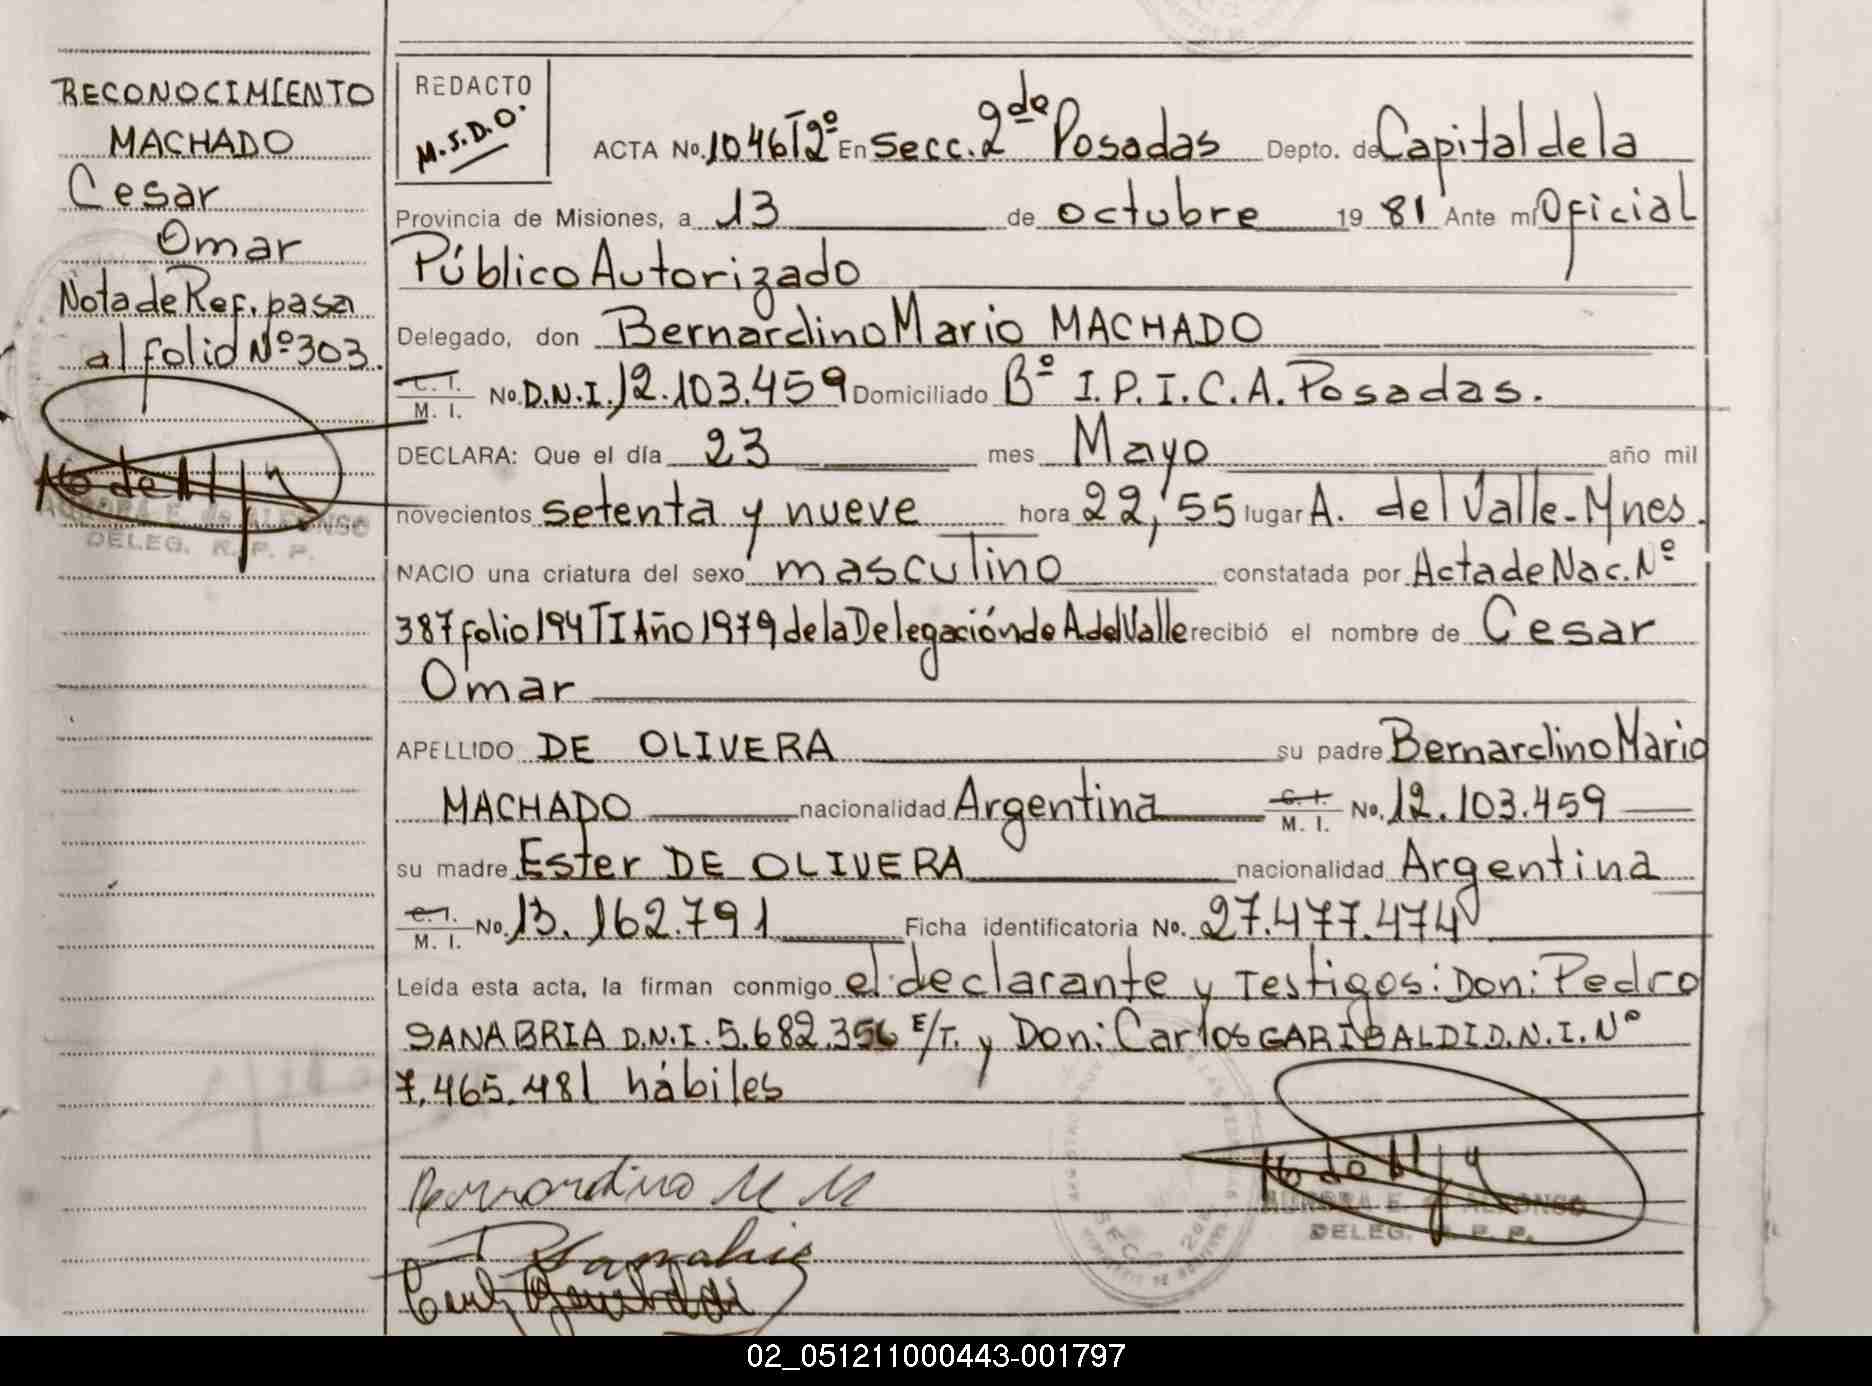 RECONOCIMIENTO
MACHADO
Cesar
Omar
Nota de Ref. pasa
al folio Nº 303.
AURORA E. de ALFONSO
DELEG. R. P. P.
REDACTO
M.S.D.O.
ACTA No. 1046 T2º En Secc. 2da Posadas Depto. de Capital de la
Provincia de Misiones, a 13 de octubre 1981 Ante mí Oficial
Público Autorizado
Delegado, don Bernardino Mario MACHADO
C. I. M. I. No. D.N.I. 12.103.459 Domiciliado Bº I.P.I.C.A. Posadas.
DECLARA: Que el día 23 mes Mayo año mil
novecientos setenta y nueve hora 22,55 lugar A. del Valle-Mnes.
NACIO una criatura del sexo masculino constatada por Acta de Nac. Nº
387 folio 194 TI Año 1979 de la Delegación de A del Valle recibió el nombre de Cesar
Omar
APELLIDO DE OLIVERA su padre Bernardino Mario
MACHADO nacionalidad Argentina C. I. M. I. No. 12.103.459
su madre Ester DE OLIVERA nacionalidad Argentina
C. I. M. I. No. 13.162.791 Ficha identificatoria No. 27.477.474
Leída esta acta, la firman conmigo el declarante y Testigos: Don: Pedro
SANABRIA D.N.I. 5.682.356 E/T. y Don: Carlos GARIBALDI D.N.I. Nº
7.465.481 hábiles
Bernardino M M
AURORA E. de ALFONSO
DELEG. R. P. P.
02_051211000443-001797